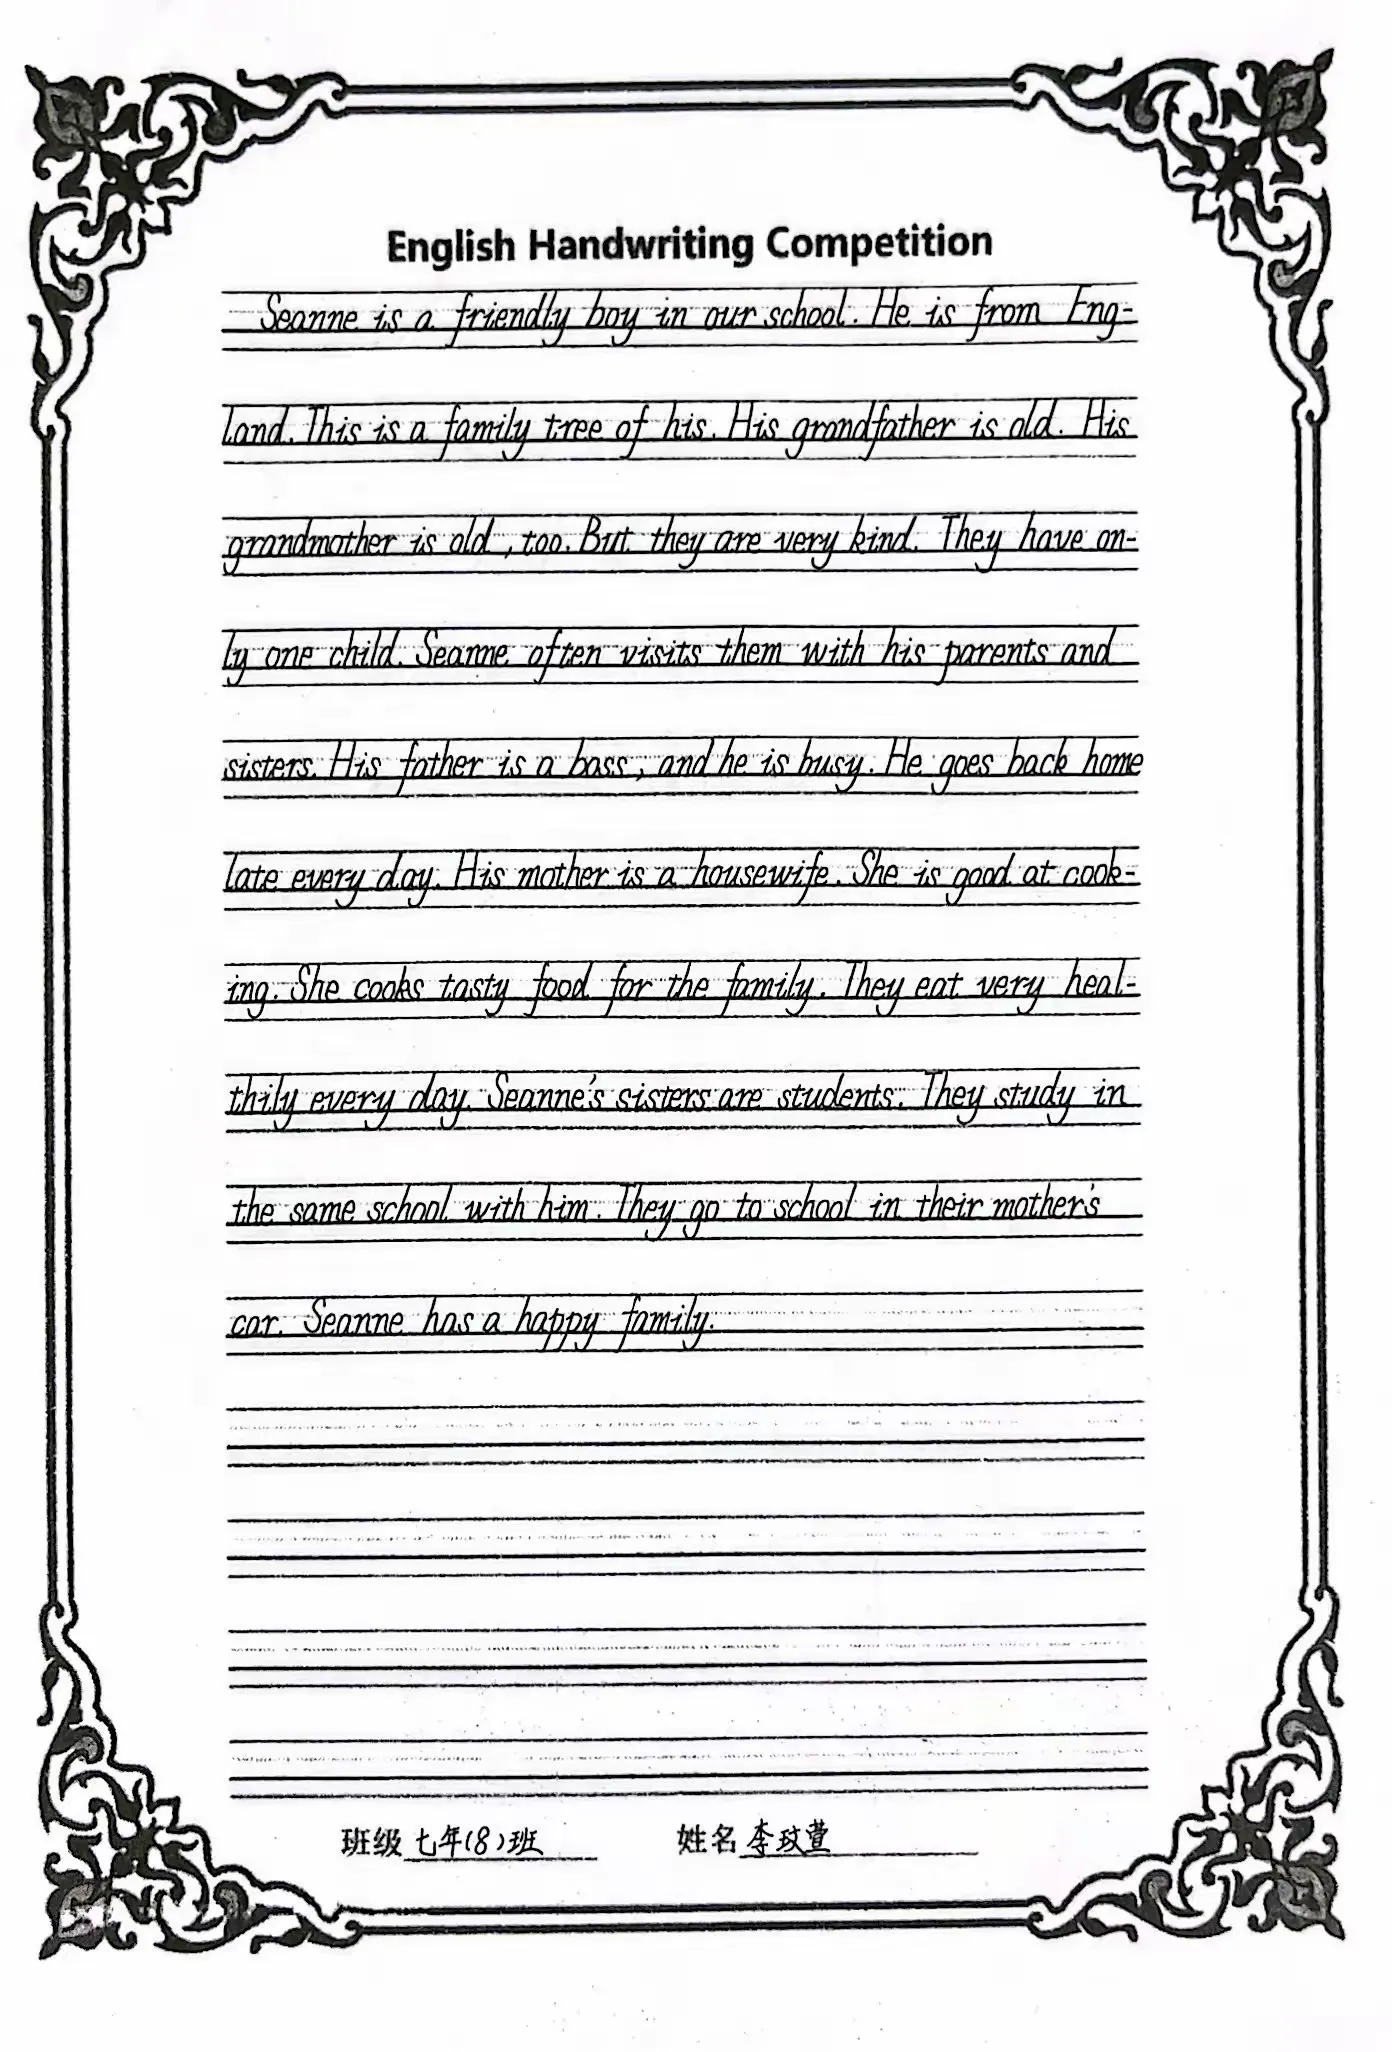 English Handwriting Competition
Seanne is a friendly boy in our school. He is from Eng-
land. This is a family tree of his. His grandfather is old. His
grandmother is old, too. But they are very kind. They have on-
ly one child. Seanne often visits them with his parents and
sisters. His father is a boss, and he is busy. He goes back home
late every day. His mother is a housewife. She is good at cook-
ing. She cooks tasty food for the family. They eat very heal-
thily every day. Seanne's sisters are students. They study in
the same school with him. They go to school in their mother's
car. Seanne has a happy family.
班级 七年(8)班 姓名 李玟萱